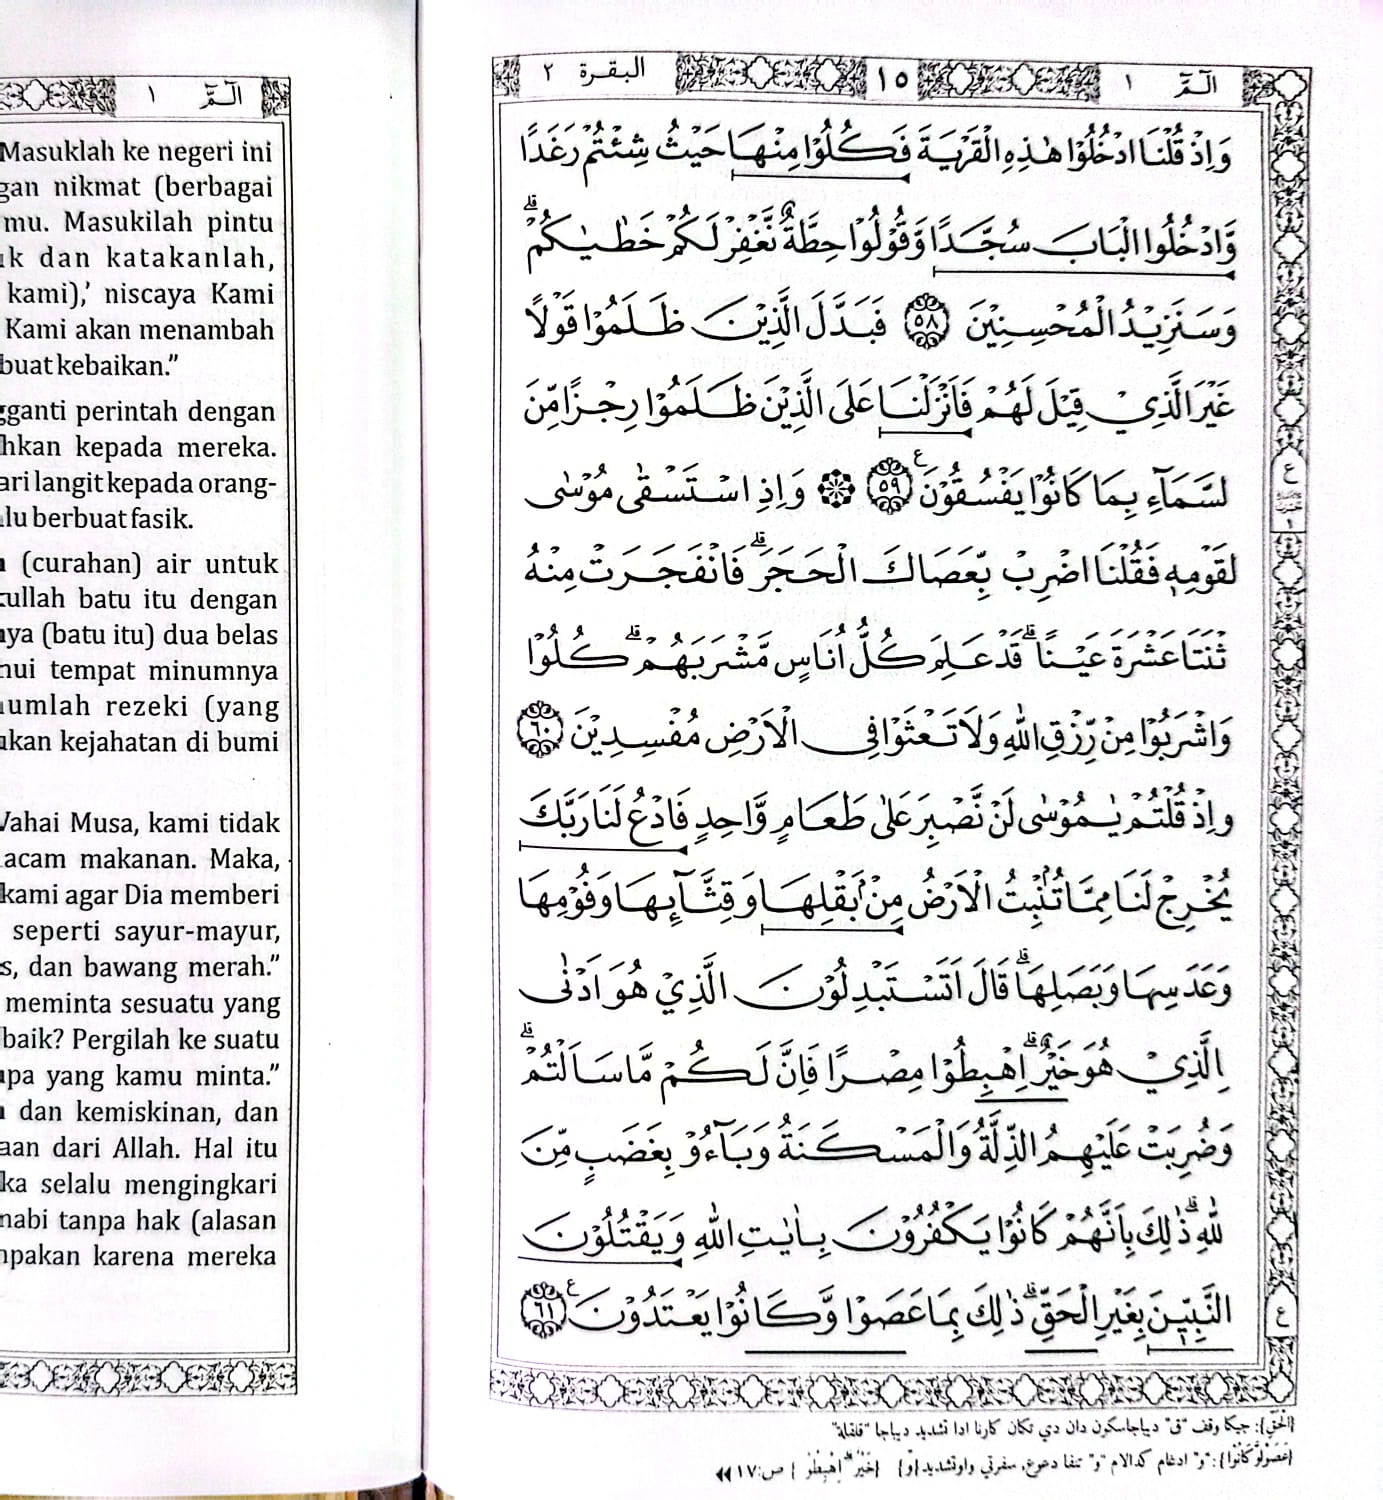 الۤمّۤ ١
Masuklah ke negeri ini
gan nikmat (berbagai
mu. Masukilah pintu
k dan katakanlah,
kami),’ niscaya Kami
Kami akan menambah
buat kebaikan.”
gganti perintah dengan
hkan kepada mereka.
ari langit kepada orang-
lu berbuat fasik.
(curahan) air untuk
ullah batu itu dengan
ya (batu itu) dua belas
hui tempat minumnya
umlah rezeki (yang
kan kejahatan di bumi
Wahai Musa, kami tidak
acam makanan. Maka,
kami agar Dia memberi
seperti sayur-mayur,
s, dan bawang merah.”
meminta sesuatu yang
baik? Pergilah ke suatu
apa yang kamu minta.”
dan kemiskinan, dan
aan dari Allah. Hal itu
ka selalu mengingkari
nabi tanpa hak (alasan
mpakan karena mereka
الۤمّۤ ١ ١٥ البقرة ٢
وَاِذْ قُلْنَا ادْخُلُوْا هٰذِهِ الْقَرْيَةَ فَكُلُوْا مِنْهَا حَيْثُ شِئْتُمْ رَغَدًا
وَّادْخُلُوا الْبَابَ سُجَّدًا وَّقُوْلُوْا حِطَّةٌ نَّغْفِرْ لَكُمْ خَطٰيٰكُمْ ۗ
وَسَنَزِيْدُ الْمُحْسِنِيْنَ ٥٨ فَبَدَّلَ الَّذِيْنَ ظَلَمُوْا قَوْلًا
غَيْرَ الَّذِيْ قِيْلَ لَهُمْ فَاَنْزَلْنَا عَلَى الَّذِيْنَ ظَلَمُوْا رِجْزًا مِّنَ
لسَّمَاۤءِ بِمَا كَانُوْا يَفْسُقُوْنَ ࣖ ٥٩ ۞ وَاِذِ اسْتَسْقٰى مُوْسٰى
لقَوْمِهٖ فَقُلْنَا اضْرِبْ بِّعَصَاكَ الْحَجَرَ ۗ فَانْفَجَرَتْ مِنْهُ
ثْنَتَا عَشْرَةَ عَيْنًا ۗ قَدْ عَلِمَ كُلُّ اُنَاسٍ مَّشْرَبَهُمْ ۗ كُلُوْا
وَاشْرَبُوْا مِنْ رِّزْقِ اللّٰهِ وَلَا تَعْثَوْا فِى الْاَرْضِ مُفْسِدِيْنَ ٦٠
واِذْ قُلْتُمْ يٰمُوْسٰى لَنْ نَّصْبِرَ عَلٰى طَعَامٍ وَّاحِدٍ فَادْعُ لَنَا رَبَّكَ
يُخْرِجْ لَنَا مِمَّا تُنْۢبِتُ الْاَرْضُ مِنْۢ بَقْلِهَا وَقِثَّاۤىِٕهَا وَفُوْمِهَا
وَعَدَسِهَا وَبَصَلِهَا ۗ قَالَ اَتَسْتَبْدِلُوْنَ الَّذِيْ هُوَ اَدْنٰى
الَّذِيْ هُوَ خَيْرٌ ۗ اِهْبِطُوْا مِصْرًا فَاِنَّ لَكُمْ مَّا سَاَلْتُمْ ۗ
وَضُرِبَتْ عَلَيْهِمُ الذِّلَّةُ وَالْمَسْكَنَةُ وَبَاۤءُوْ بِغَضَبٍ مِّنَ
للّٰهِ ۗ ذٰلِكَ بِاَنَّهُمْ كَانُوْا يَكْفُرُوْنَ بِاٰيٰتِ اللّٰهِ وَيَقْتُلُوْنَ
النَّبِيّٖنَ بِغَيْرِ الْحَقِّ ۗ ذٰلِكَ بِمَا عَصَوْا وَّكَانُوْا يَعْتَدُوْنَ ࣖ ٦١
{اَلْحَقِّ}: جيكا وقف "ق" ديباجاسكون دان دي تكان كارنا ادا تشديد ديباجا "قلقلة"
{عَصَوْا وَّكَانُوْا}: "و" ادغام كدالام "و" تنفا دعوع، سفرتي واوتشديد {وّ} {خَيْرٌ ۗ اِهْبِطُوْا} ص: ١٧